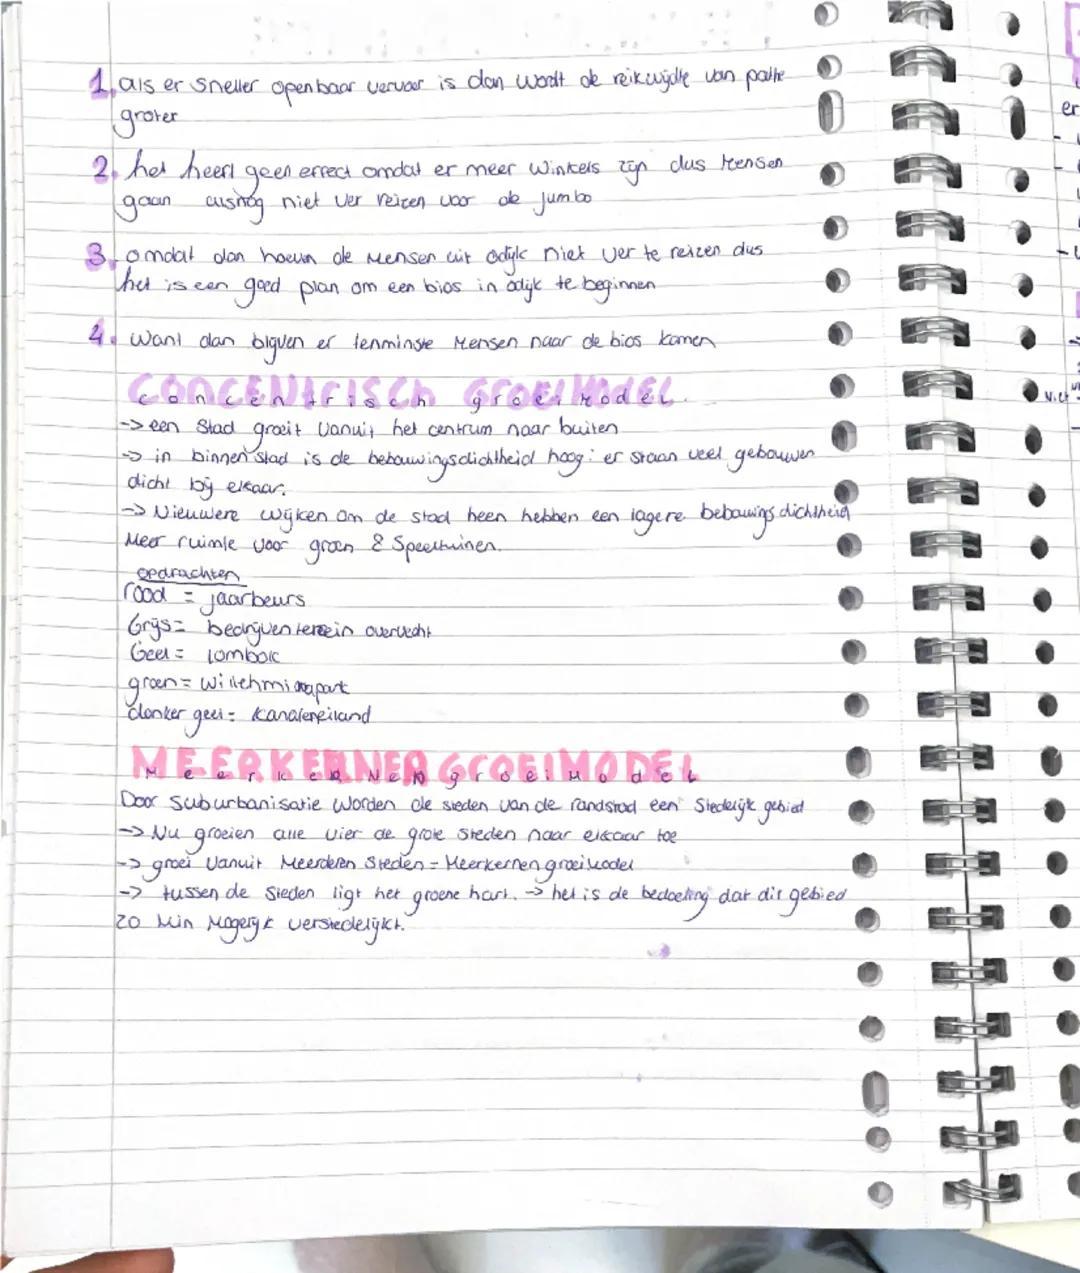 1. als er sneller openbaar vervoer is dan wordt de reikwijdte van pathe
groter
2. het heeft geen effect omdat er meer winkels zijn dus mensen
gaan alsnog niet ver reizen voor de jumbo
3. omdat dan hoeven de mensen uit odijk niet ver te reizen dus
het is een goed plan om een bios in odijk te beginnen
4. want dan blijven er tenminste mensen naar de bios komen
CONCENTRISCH GROEIMODEL
concentrisch groeimodel.
-> een stad groeit vanuit het centrum naar buiten
-> in binnenstad is de bebouwingsdichtheid hoog: er staan veel gebouwen
dicht bij elkaar.
-> Nieuwere wijken om de stad heen hebben een lagere bebouwingsdichtheid
Meer ruimte voor groen & speeltuinen.
opdrachten
rood = jaarbeurs
Grijs = bedrijventerrein overvecht
Geel = lombok
groen = wilhelminapark
donker geel = kanaleneiland
MEERKERNEN GROEIMODEL
Meerkernen groeimodel
Door suburbanisatie worden de steden van de randstad een stedelijk gebied
-> Nu groeien alle vier de grote steden naar elkaar toe
-> groei vanuit meerderen steden = Meerkernen groeimodel
-> tussen de steden ligt het groene hart. -> het is de bedoeling dat dit gebied
zo min mogelijk verstedelijkt.
er
Niet